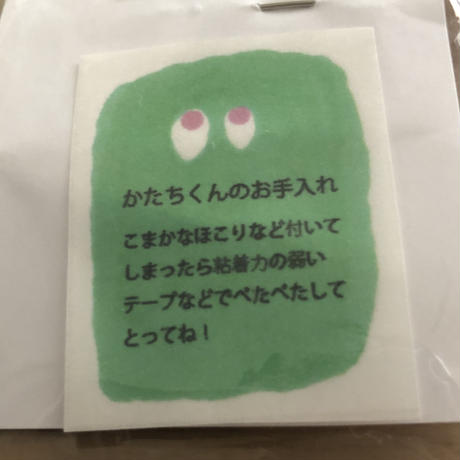 かたちくんのお手入れ
こまかなほこりなど付いて
しまったら粘着力の弱い
テープなどでぺたぺたして
とってね！